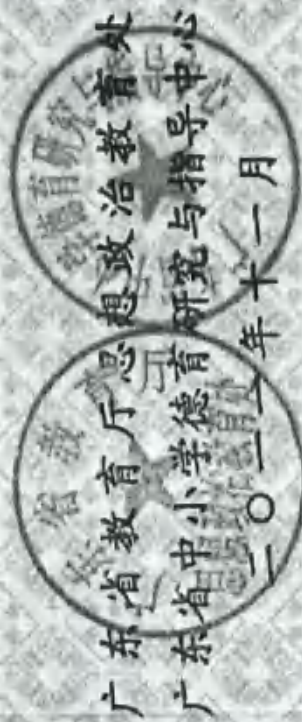 广东省教育厅思想政治教育处
广东省中小学德育研究与指导中心
二〇一一年十一月